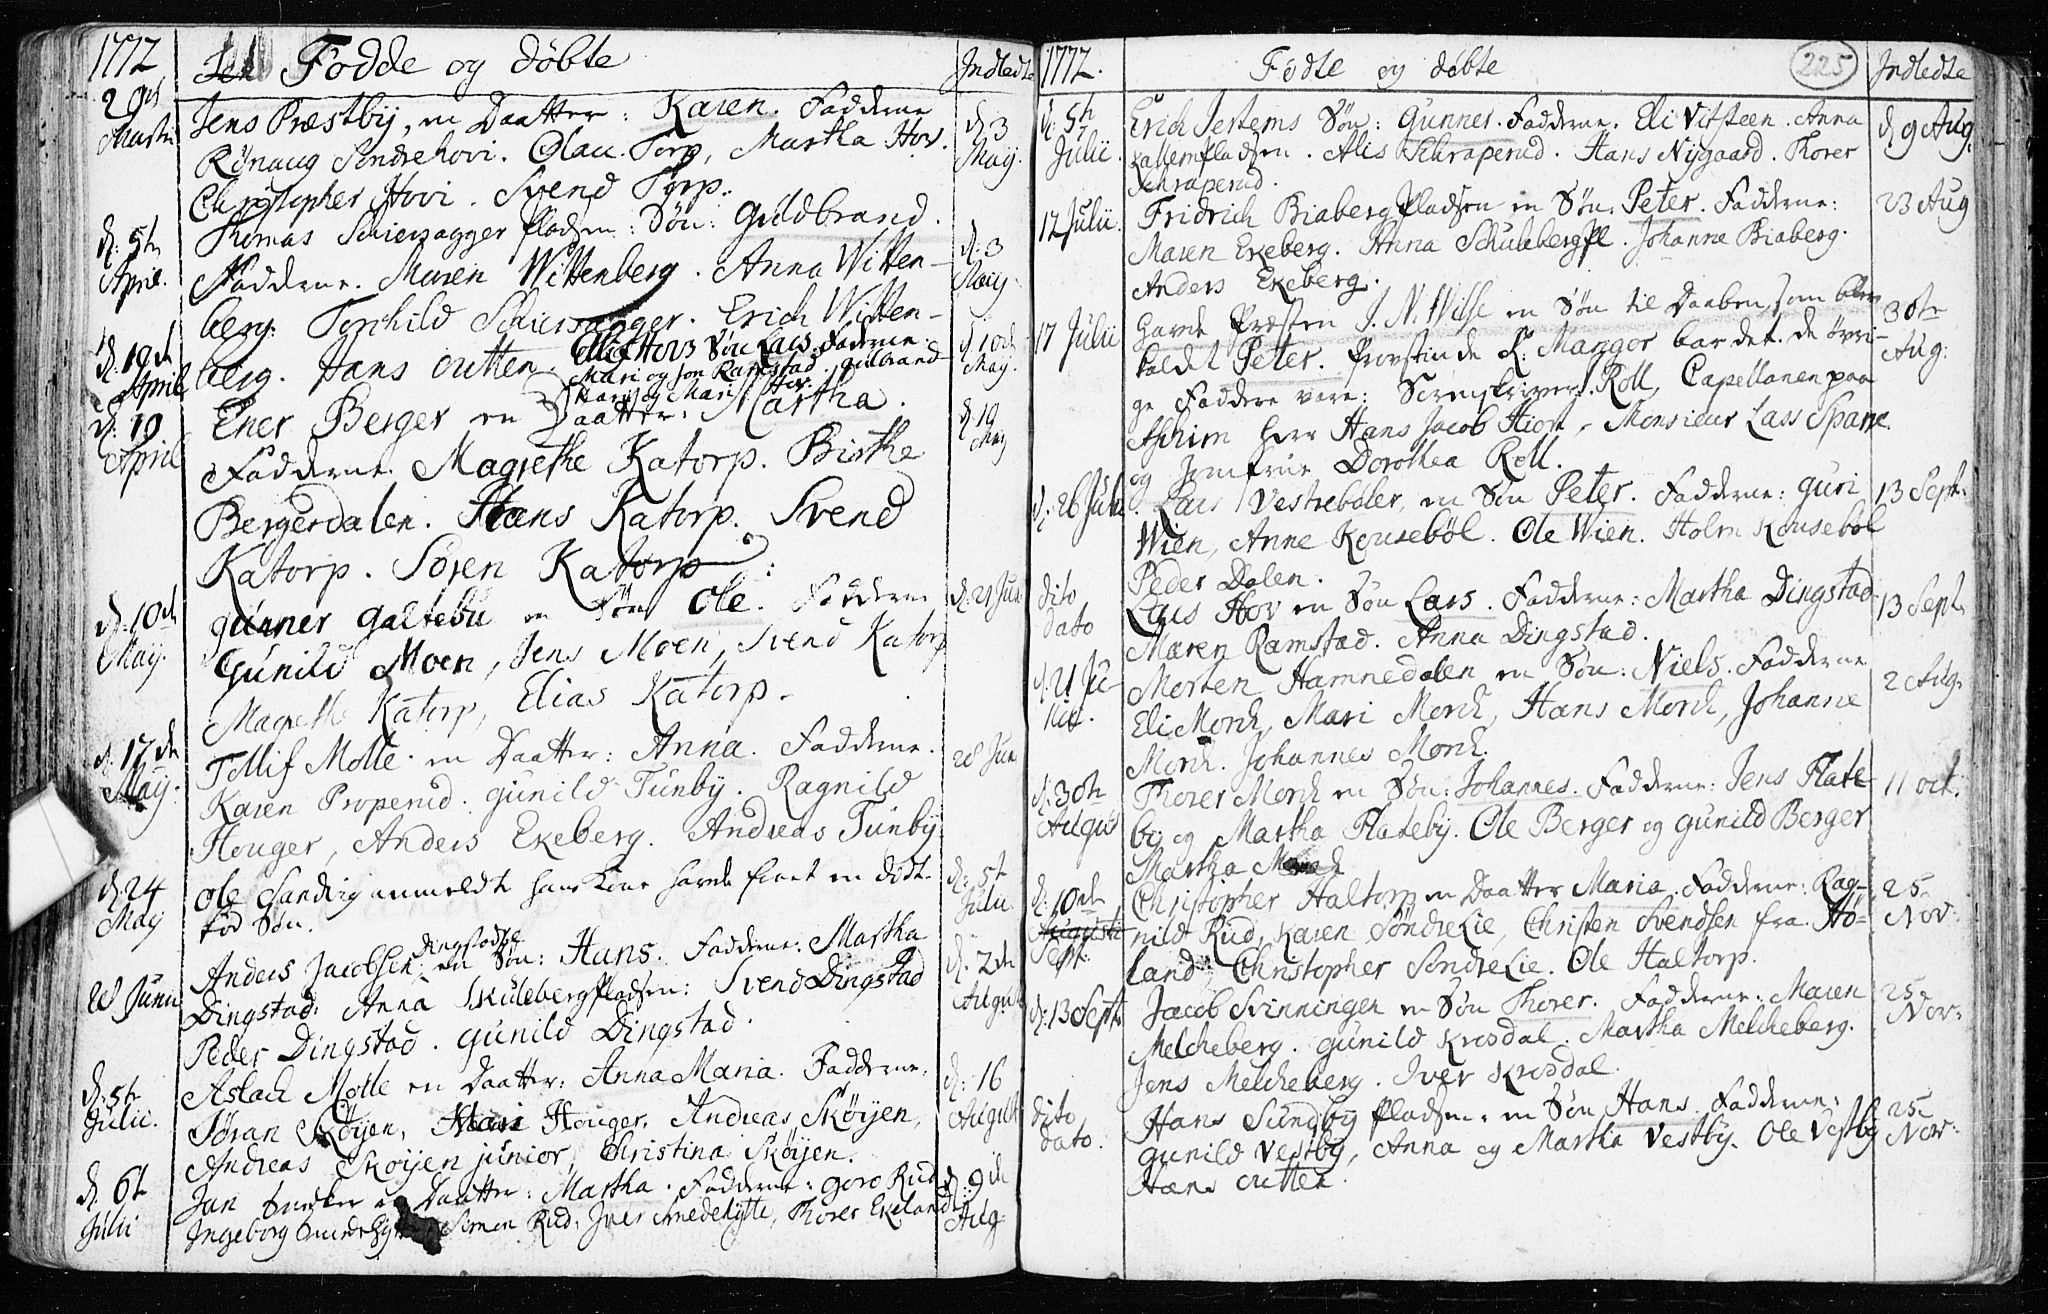 1772 Fødde og døbte Indledte
29de Martii Jens Præstby, en Daatter: Karen. Fadderne d. 3 Maij.
Rønaug Søndrehovi. Olau Torp, Martha Hov.
Christopher Hovi. Svend Torp.
d: 5te April. Thomas Schiersagger Pladsen: Søn: Guldbrand. d: 3 Maij
Fadderne. Maren Wittenberg. Anna Witten-
berg: Torchild Schiersagger. Erich Witten-
berg. Hans Outten.
d: 12te April Ellif Hovs Søn Lars Faderne d 10de May.
Mari og Jon Ramstad. Gulbrand
Mari Hov.
d: 19 April Ener Berger en Daatter: Martha. d: 10 May
Fadderne. Magrethe Katorp. Birthe
Bergerdalen. Hans Katorp. Svend
Katorp. Søren Katorp.
d: 10de Maij. Gunner Galtebu en Søn Ole. Fadderne d: 21 Jun.
Gunild Moen, Jens Moen, Svend Katorp
Magrethe Katorp, Elias Katorp.
d. 17de Maij. Tellif Molte en Daatter: Anna. Fadderne. 28 Jun
Karen Properud. Gunild Tunby. Ragnild
Houger, Anders Ekeberg. Andreas Tunby
d: 24 May Ole Sandvig anmeldte hans Kone havde fÿdet en død- d: 5te Julii
fød Søn.
28 Junii Anders Jacobsen Dingstadøe en Søn: Hans. Fadderne: Martha d. 2den August
Dingstad: Anna Skulebergpladsen: Svend Dingstad
Peder Dingstad. Gunild Dingstad.
d: 5te Julii. Aslach Molle en Daatter: Anna Maria. Fadderne. d: 16 August
Søran Skøijen, Mari Houger, Andreas Skøijen,
Andreas Skøijen junior, Christina Skøijen.
d. 6te Julii Jan en Daatter: Martha. Fadderne: Goro Rud d: 9de Aug
Ingeborg Simen Rud: Iver Smedehytte, Thorer Ekeland
1772. Fødte og døbte 225 Indledte
d: 5te Julii. Erich Jertems Søn: Gunner. Fadderne. Eli Vitsteen. Anna d. 9 Aug.
Kallempladsen. Alis Schraperud. Hans Nygaard. Thorer
Schraperud.
12 Julii. Fridrich Biaberg Pladsen en Søn: Peter. Fadderne: 23 Aug
Maren Ekeberg. Anna Schulebergpl. Johanne Biaberg.
Anders Ekeberg.
17 Julii havde Præsten J. N. Wilse en Søn til Daaben, som blev 30te Aug:
kaldet Peter. Provstinde L: Mangor bar det. de øvri-
ge Faddere vare: Sorenskriver Roll, Capellanen paa
Askim Herr Hans Jacob Hiort, Monsieur Lars Spare
og Jomfrue Dorothea Roll.
d: 26 Julii. Lars Vestrebøler, en Søn Peter. Fadderne: Guri 13 Sept.
Wien, Anne Kousebøl. Ole Wien. Holm Kousebøl
Peder Dalen.
dito dato Lars Hov en Søn Lars. Fadderne: Martha Dingstad 13 Sept.
Maren Ramstad. Anna Dingstad.
d. 21 Ju-
lii. Morten Hamnedalen en Søn: Niels. Fadderne 2 Aug.
Eli Morch, Mari Morch, Hans Morch, Johanne
Morch. Johannes Morch.
d: 30te August Thorer Morch en Søn: Johannes. Fadderne: Jens Flate- 11 oct.
by og Martha Flateby. Ole Berger og Gunild Berger
Martha Morch
d: 10de Augusti Sept. Christopher Haltorp en Daatter Maria. Fadderne: Rag- 25 Nov:
nild Rud, Karen Søndrelie, Christen Svendsen fra Hø-
land, Christopher Søndrelie. Ole Haltorp.
d: 13 Sept. Jacob Svinningen en Søn Thorer. Fadderne: Maren 25 Nov:
Melcheberg. Gunild Krosdal. Martha Melcheberg.
Jens Melcheberg. Iver Krosdal.
dito dato. Hans Sundby Pladsen: en Søn Hans. Fadderne: 25 Nov:
Gunild Vestby, Anna og Martha Vestby. Ole Vestby
Hans Outten.